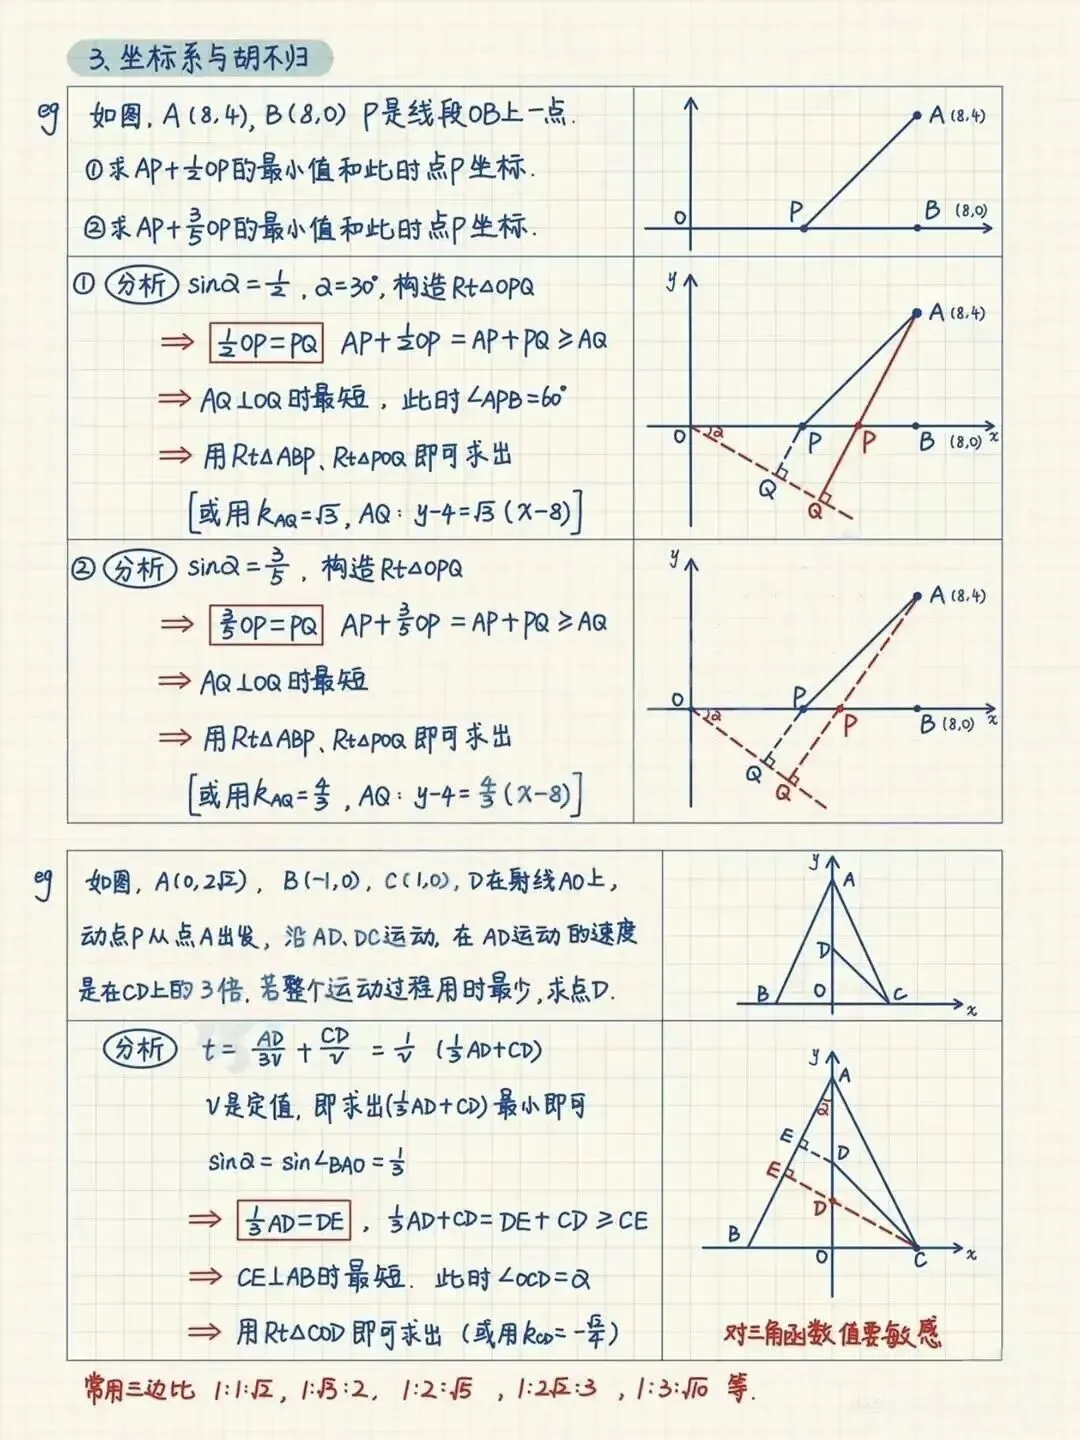 3、坐标系与胡不归
eg 如图, A(8,4), B(8,0) P是线段OB上一点.
①求AP+½OP的最小值和此时点P坐标.
②求AP+3/5OP的最小值和此时点P坐标.
A(8,4)
O P B (8,0)
① 分析 sinα=½, α=30°, 构造Rt△OPQ
⇒ ½OP=PQ AP+½OP=AP+PQ≥AQ
⇒ AQ⊥OQ时最短, 此时∠APB=60°
⇒ 用Rt△ABP、Rt△POQ即可求出
[或用k_AQ=√3, AQ: y-4=√3(x-8)]
y
A(8,4)
O α P P B (8,0) x
Q Q
② 分析 sinα=3/5, 构造Rt△OPQ
⇒ 3/5OP=PQ AP+3/5OP=AP+PQ≥AQ
⇒ AQ⊥OQ时最短
⇒ 用Rt△ABP、Rt△POQ即可求出
[或用k_AQ=4/3, AQ: y-4=4/3(x-8)]
y
A(8,4)
O α P P B(8,0) x
Q Q
eg 如图, A(0,2√2), B(-1,0), C(1,0), D在射线AO上,
动点P从点A出发, 沿AD、DC运动, 在AD运动的速度
是在CD上的3倍, 若整个运动过程用时最少, 求点D.
y
A
D
B O C x
分析 t=AD/3V+CD/V=1/V(⅓AD+CD)
V是定值, 即求出(⅓AD+CD)最小即可
sinα=sin∠BAO=⅓
⇒ ⅓AD=DE, ⅓AD+CD=DE+CD≥CE
⇒ CE⊥AB时最短. 此时∠OCD=α
⇒ 用Rt△COD即可求出(或用k_CD=-√2/4)
y
A
α
E D
E D
B O C x
对三角函数值要敏感
常用三边比 1:1:√2, 1:√3:2, 1:2:√5, 1:2√2:3, 1:3:√10 等.